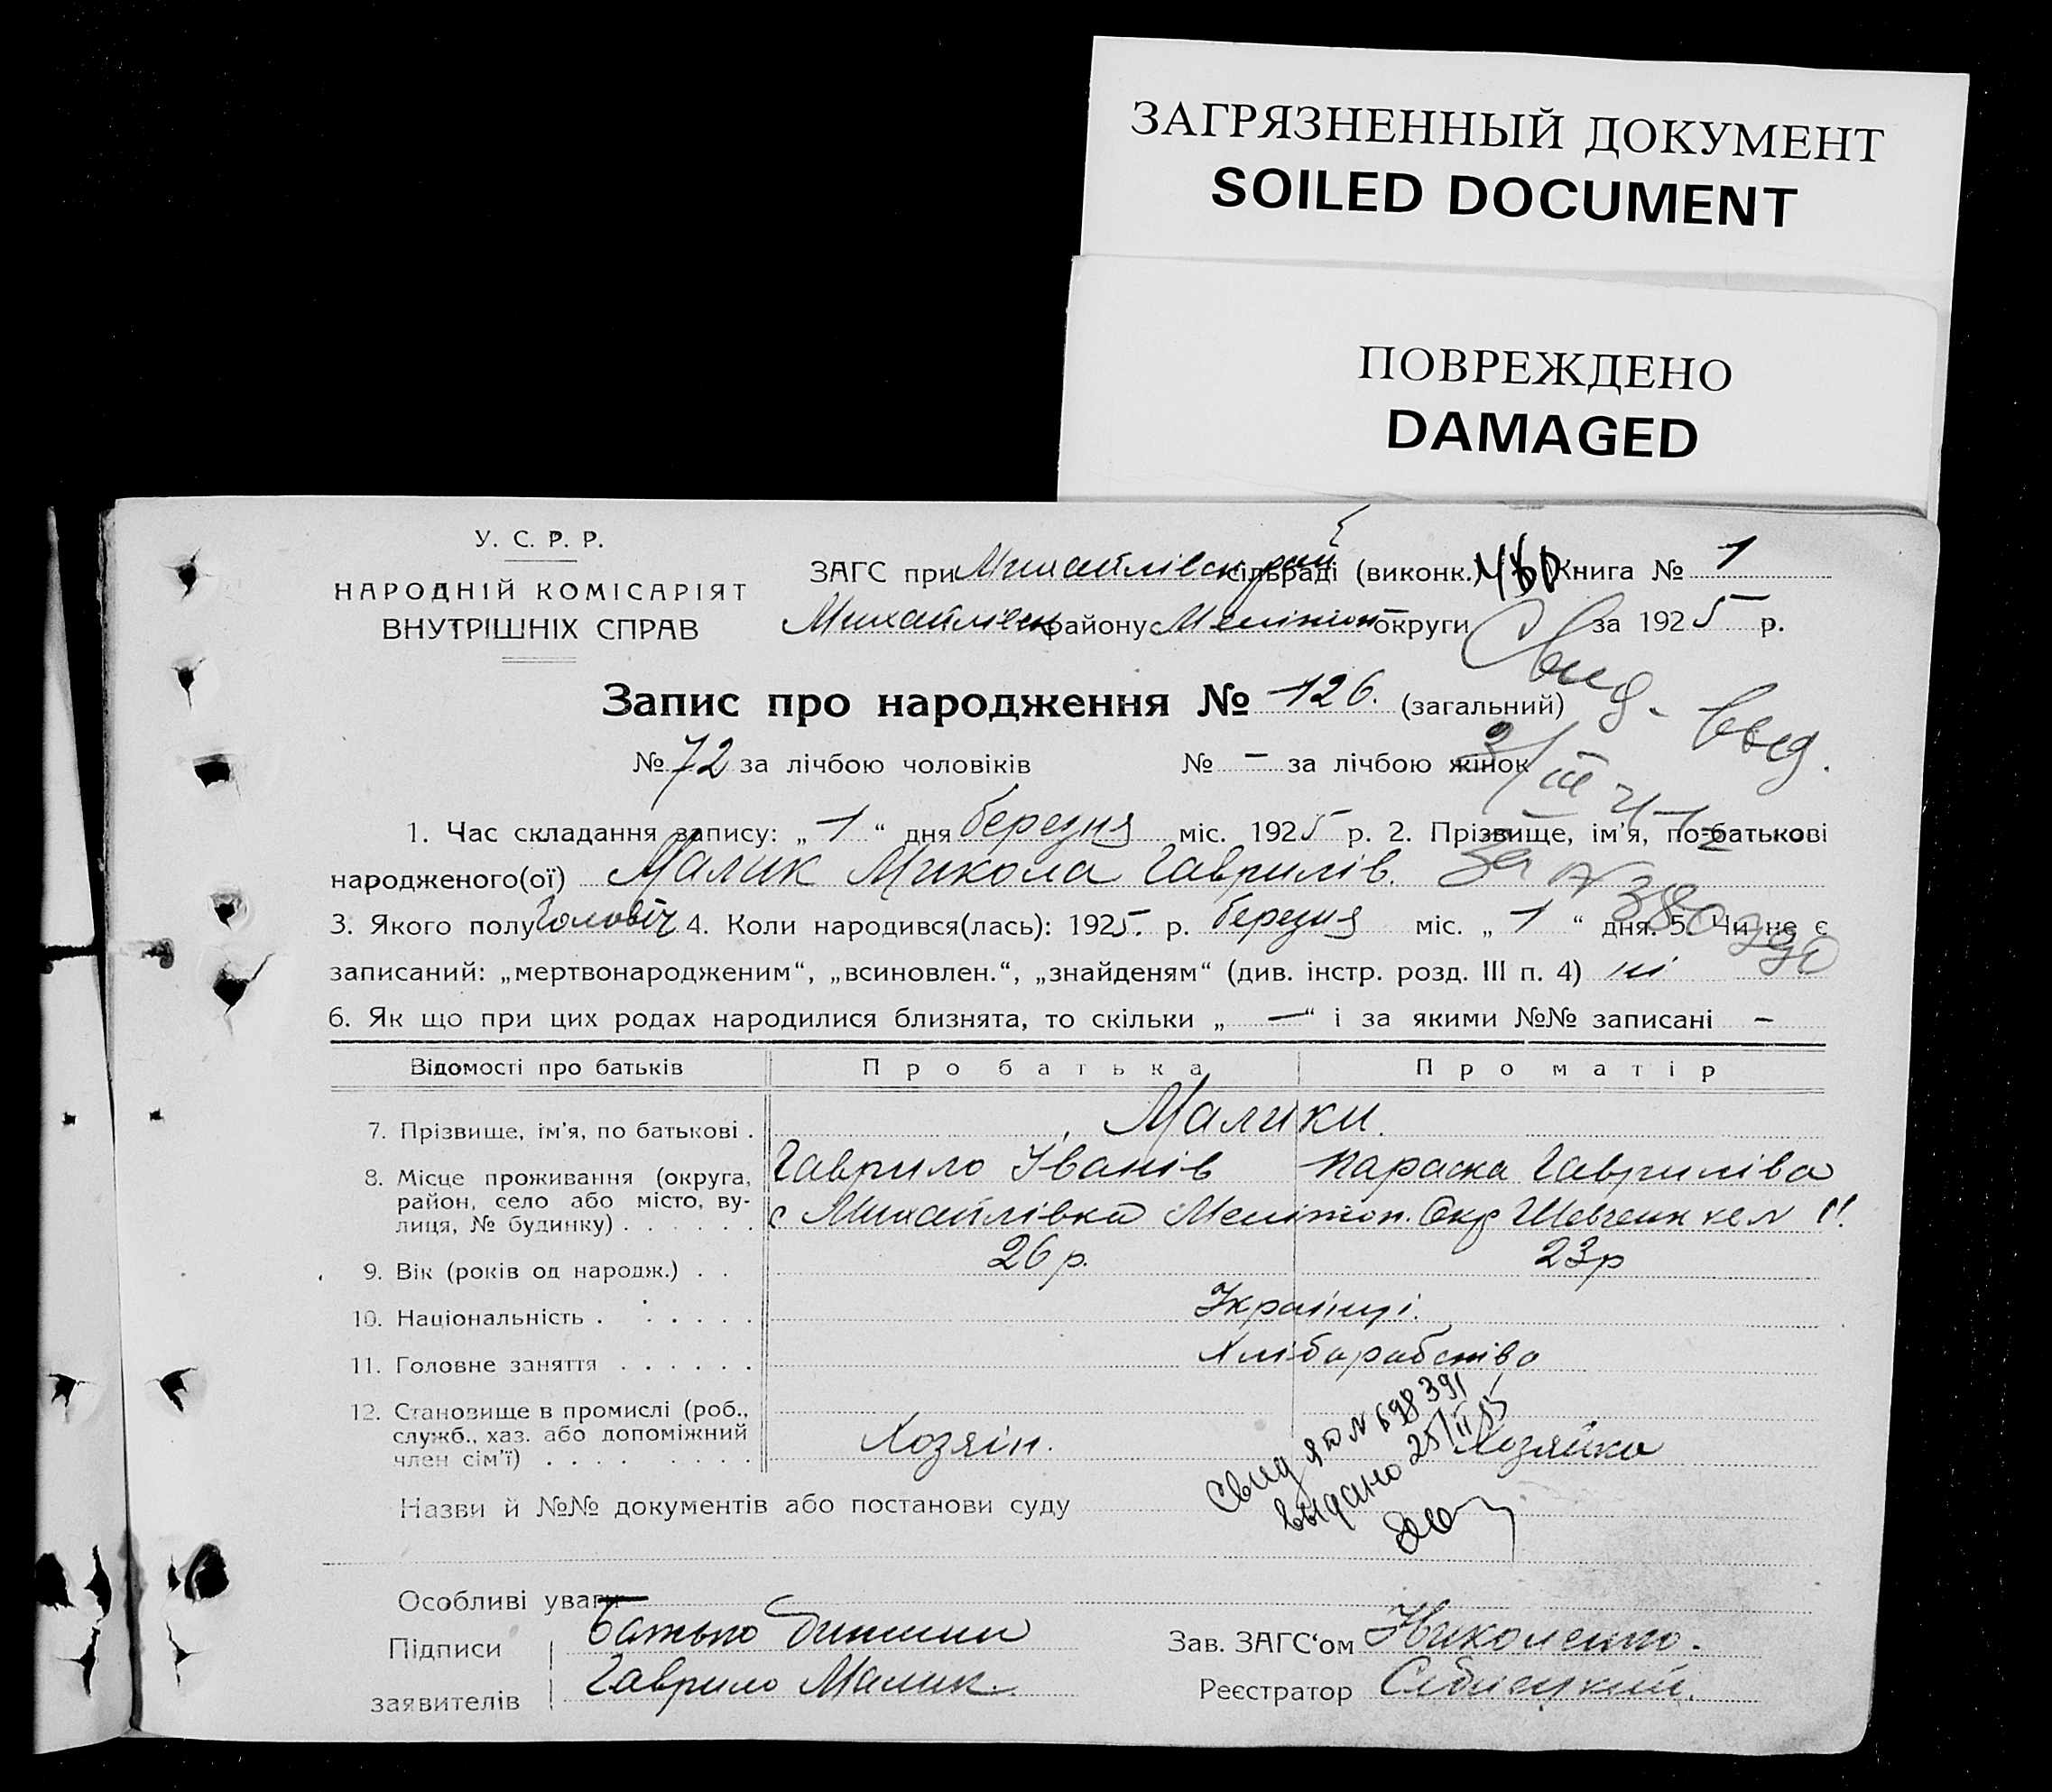 ЗАГРЯЗНЕННЫЙ ДОКУМЕНТ
SOILED DOCUMENT
ПОВРЕЖДЕНО
DAMAGED
У. С. Р. Р.
НАРОДНІЙ КОМІСАРІЯТ
ВНУТРІШНІХ СПРАВ
ЗАГС при Михайлівськ рай сільраді (виконк.) Книга № 1
Михайлівськ району Мелітоп округи за 1925 р.
Свид. выд.
Запис про народження № 126. (загальний)
№ 72 за лічбою чоловіків № – за лічбою жінок
3/III 41
1. Час складання запису: „ 1 “ дня березня міс. 1925 р. 2. Прізвище, ім'я, по-батькові
народженого(ої) Малик Микола Гаврилів.
за №
3. Якого полу Чоловіч 4. Коли народився(лась): 1925. р. березня міс. „ 1 “ дня. 5. Чи не є
записаний: „мертвонародженим“, „всиновлен.“, „знайденям“ (див. інстр. розд. III п. 4) ні
6. Як що при цих родах народилися близнята, то скільки „ — “ і за якими №№ записані –
Відомості про батьків Про батька Про матір
7. Прізвище, ім'я, по батькові . Малики.
Гаврило Іванів Параска Гаврилівa
8. Місце проживання (округа,
район, село або місто, ву-
лиця, № будинку) . . . . . . с Михайлівка Мелітоп. Окр Шевченк
9. Вік (років од народж.) . . 26 р. 23 р
10. Національність . . . . . . Українці.
11. Головне заняття . . . . . . Хліборабство
12. Становище в промислі (роб.,
служб., хаз. або допоміжний
член сім'ї) . . . . . . . . Хозяін. Хозяйка
Свид ЯЮ № 698391
выдано 25/II 85
Назви й №№ документів або постанови суду
Особливі уваги
Підписи Батько дитини
заявителів Гаврило Малик.
Зав. ЗАГС‘ом Николенко.
Реєстратор